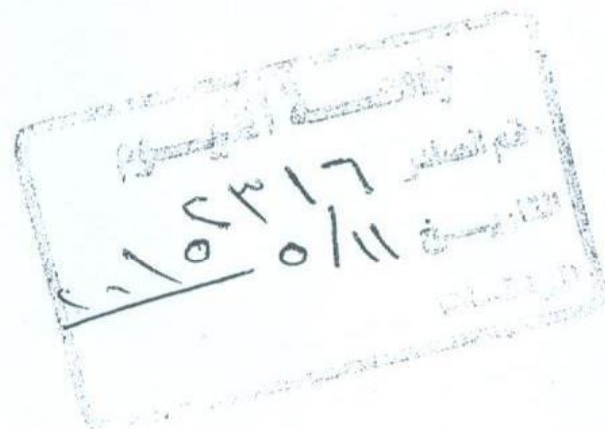 جامعة الفيوم
رقم الصادر ٢٣١٦
التاريخ ١١/٥ ٢٠١٥
المرفقات